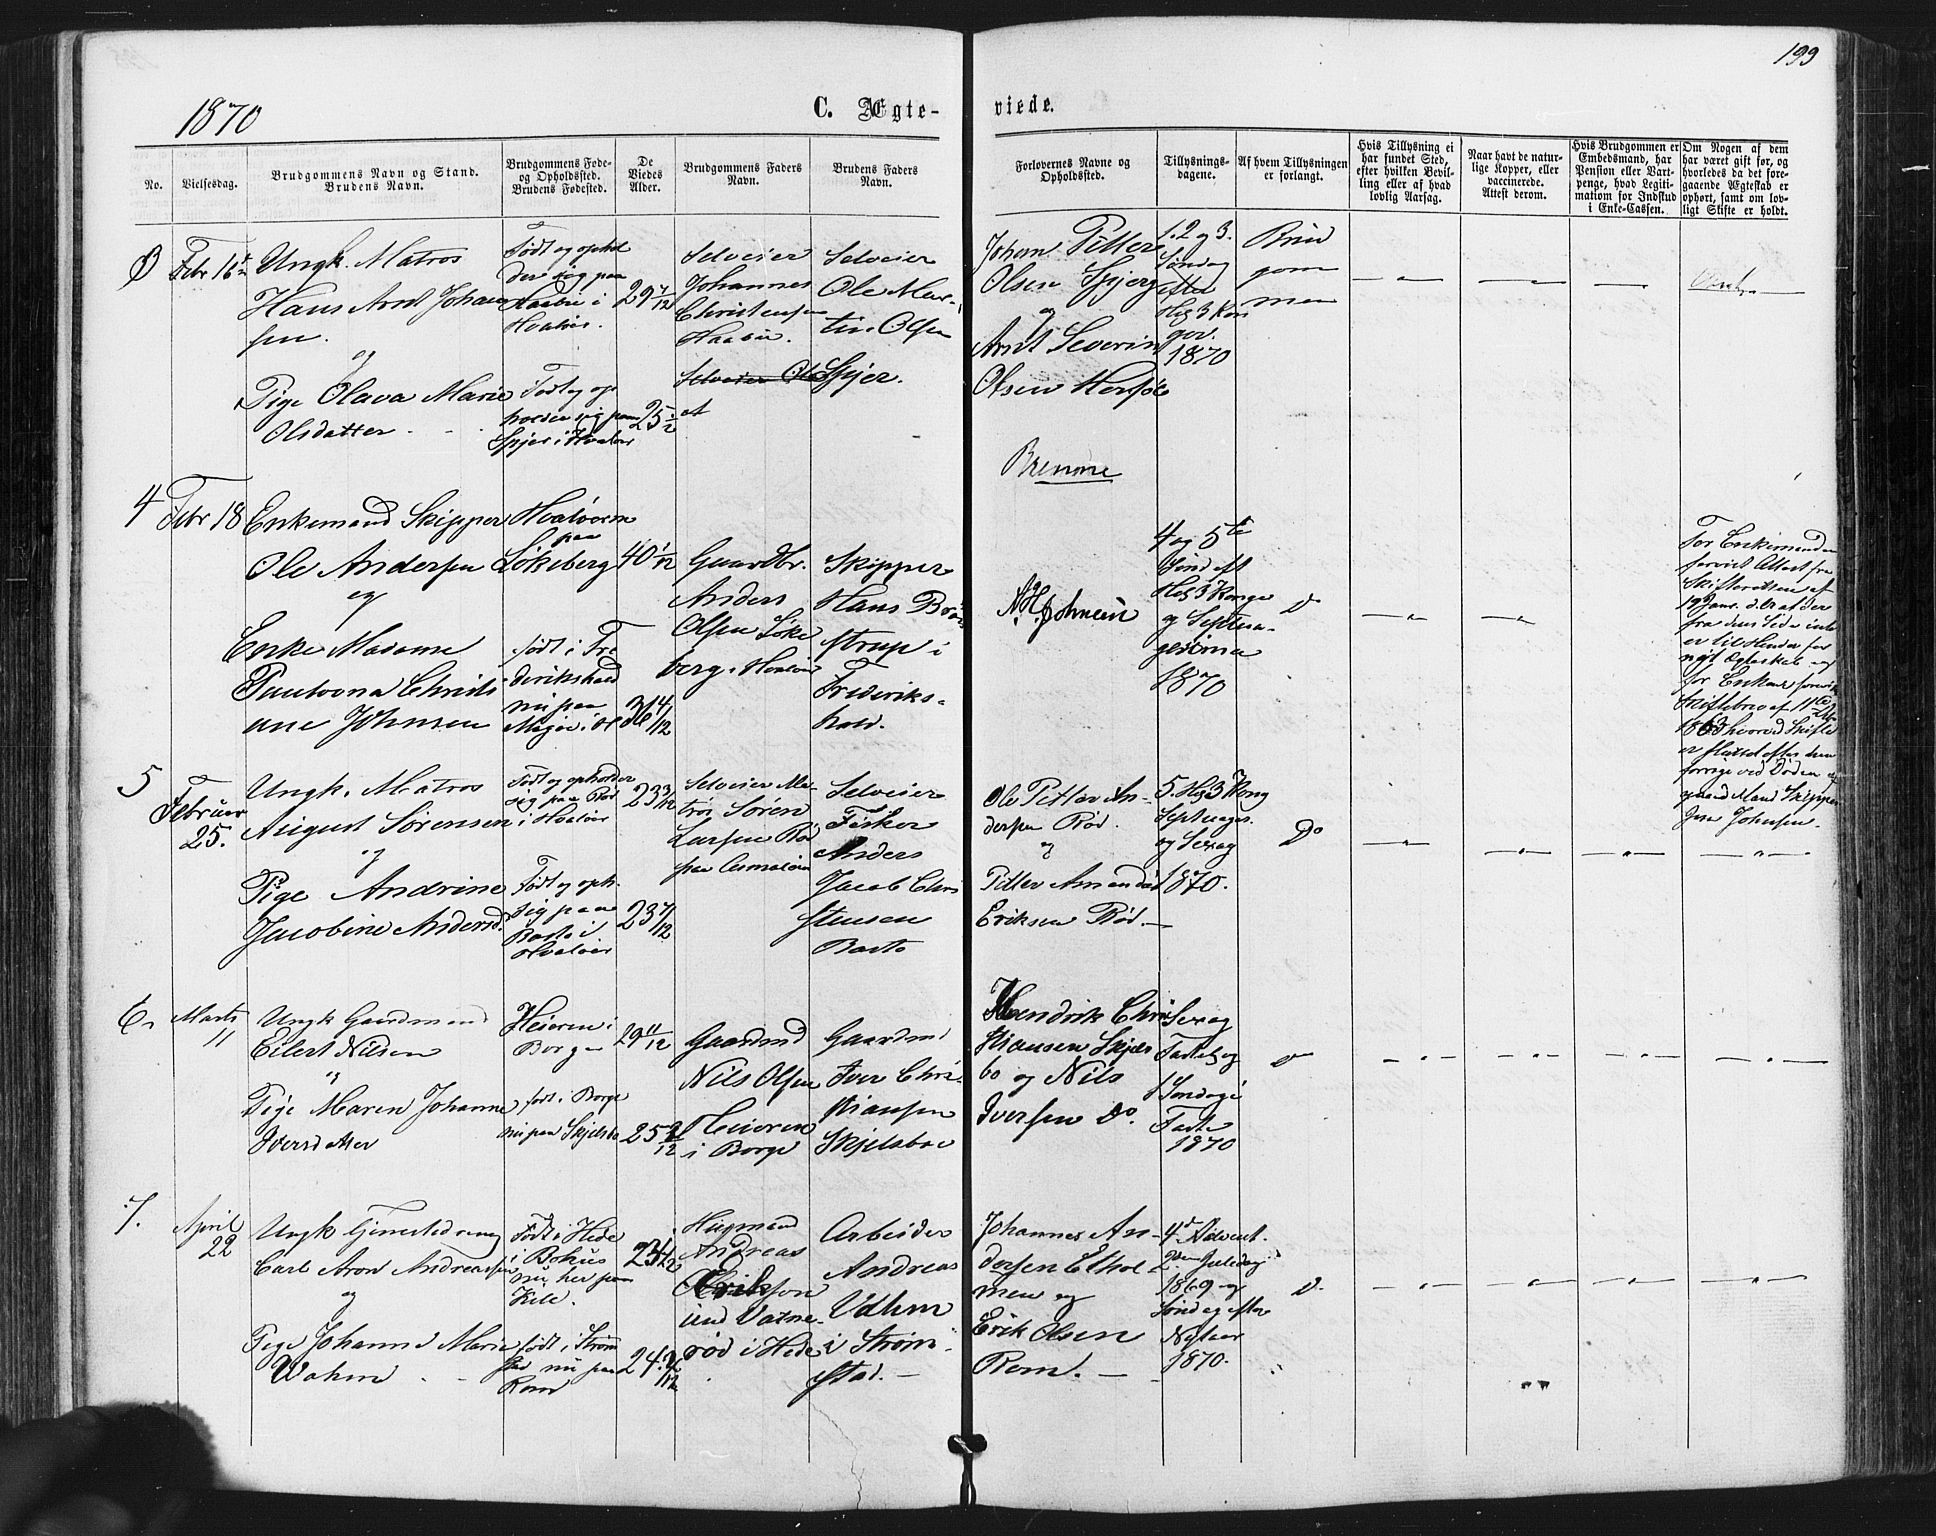 199
1870
C. Ægte-
viede.
No.
Vielsesdag.
Brudgommens Navn og Stand.
Brudens Navn.
Brudgommens Føde-
og Opholdssted.
Brudens Fødested.
De
Viedes
Alder.
Brudgommens Faders
Navn.
Brudens Faders
Navn.
Forlovernes Navne og
Opholdssted.
Tillysnings-
dagene.
Af hvem Tillysningen
er forlangt.
Hvis Tillysning ei
har fundet Sted,
efter hvilken Bevil-
ling eller af hvad
lovlig Aarsag.
Naar havt de natur-
lige Kopper, eller
vaccinerede.
Attest derom.
Hvis Brudgommen er
Embedsmand, har
Pension eller Vart-
penge, hvad Legiti-
mation for Indskud
i Enke-Cassen.
Om Nogen af dem
har været gift før, og
hvorledes da det fore-
gaaende Ægteskab er
ophørt, samt om lov-
ligt Skifte er holdt.
3
Febr 16
Ungk. Matros
Hans Arnt Johan
sen.
og
Pige Olava Marie
Olsdatter
Født og ophol
der sig paa
i
Hvaløer.
Født og op
holder sig paa
Spjer i Hvaløer
29 7/12
25
Selveier
Johannes
Christensen
Selveier
Selveier
Ole Mar-
tin Olsen
Spjer.
Johan Pitter
Olsen Spjer
og
Arnt Severin
Olsen
1. 2 og 3.
Søndag
efter
Hel 3 Kon
ger.
1870
Brud
gom
men
4
Febr 18
Enkemand Skipper
Ole Andersen
og
Enke Madame
Christi
ane Johnsen
Hvaløerne
paa
Løkeberg
født i Fre
derikshald
nu paa
40 1/12
Gaardbr.
Anders
Olsen Løke
berg i Hvaløer
Skipper
Hans
strup i
Frederiks-
hald.
4 og 5te
Sønd eft
Hel 3 Konge
og Septua-
gesima
1870
Do
For Enkemanden
Attest fra
Skifteretten af
19 Janr.
fra dens Side intet
er til Hinder for
nyt Ægteskab og
for Enken
Skiftebrev af 11te
hvorved Skifte
er sluttet efter den
forrige ved Døden
Mand Skipper
Johnsen.
5
Februar
25.
Ungk. Matros
August Sørensen
og
Pige Andrine
Jacobine Andersd.
Født og opholder
sig paa Rød
i Hvaløer
Født og oph.
sig paa
Basto i
Hvaløer
23 3/12
23 7/12
Selveier Ma-
tros Sören
Larsen Rød
paa
Selveier
Fisker
Anders
Jacob Chri
stensen
Basto
Ole Pitter An-
dersen Rød.
og
Pitter
Eriksen Rød.
5. Hel 3 Kong
Septuages.
og Sexag
1870.
Do
6
Marts
11
Ungk Gaardmand
Eilert Nilsen
og
Pige Maren Johanne
Iversdatter
i
Borge
født i Borge
nu paa Skjelsbo
29 11/12
Gaardmd
Nils Olsen
i Borge
Gaardmd
Iver Chri-
stiansen
Skjelsboe
Hendrik Chri
stiansen Skjels
bo og Nils
Iversen do.
Sexag
Fastel og
1 Søndag i
Faste
1870
Do
7.
April
22
Ungk Tjenestedreng
Carl Aron Andreassen
og
Pige Johanne Marie
Født i Hede
i Bohus
nu her paa
Kile.
født i Strøm
stad nu paa
Rom
Husmand
Andreas
Erikson
und Vatne-
rød i Hede
Arbeider
Andreas
i Strøm
stad.
Johannes An-
dersen
men og
Erik Olsen
Rom.
4de Advent.
2den Juledag
1869 og
Søndag efter
Nytaar
1870.
Do.